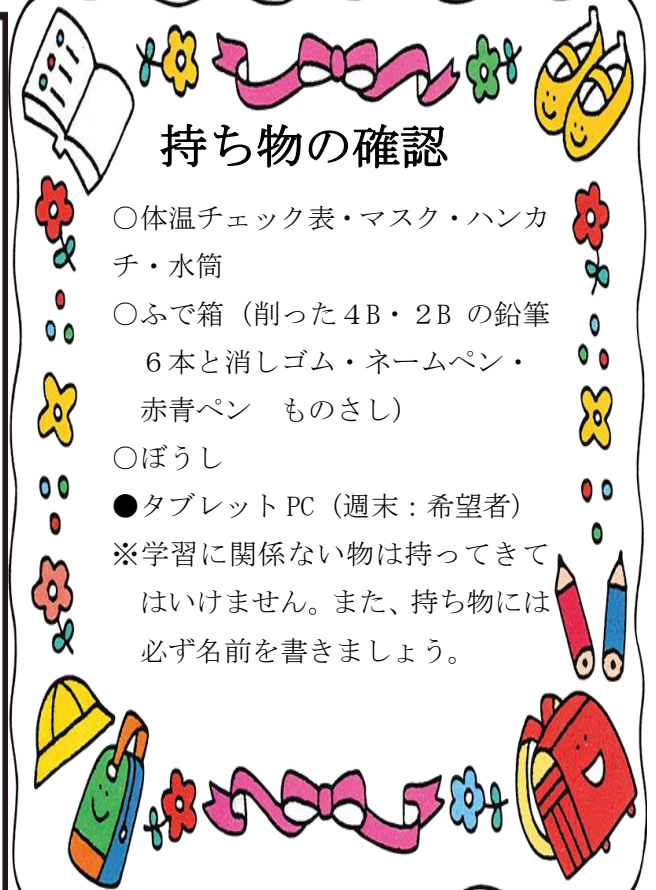 持ち物の確認
○体温チェック表・マスク・ハンカ
チ・水筒
○ふで箱（削った４B・２B の鉛筆
６本と消しゴム・ネームペン・
赤青ペン　ものさし）
○ぼうし
●タブレット PC（週末：希望者）
※学習に関係ない物は持ってきて
はいけません。また、持ち物には
必ず名前を書きましょう。